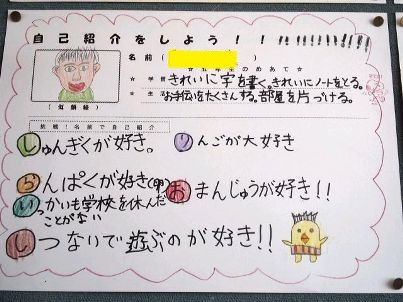 自己紹介をしよう！！
名前（
☆学習 きれいに字を書く。きれいにノートをとる。
☆生活 お手伝いをたくさんする。部屋を片づける。
（似顔絵）
挑戦！名前で自己紹介
しゅんぎくが好き。
りんごが大好き
らんぱくが好き(卵)
おまんじゅうが好き!!
いっかいも学校を休んだ
ことがない
しつないで遊ぶのが好き!!